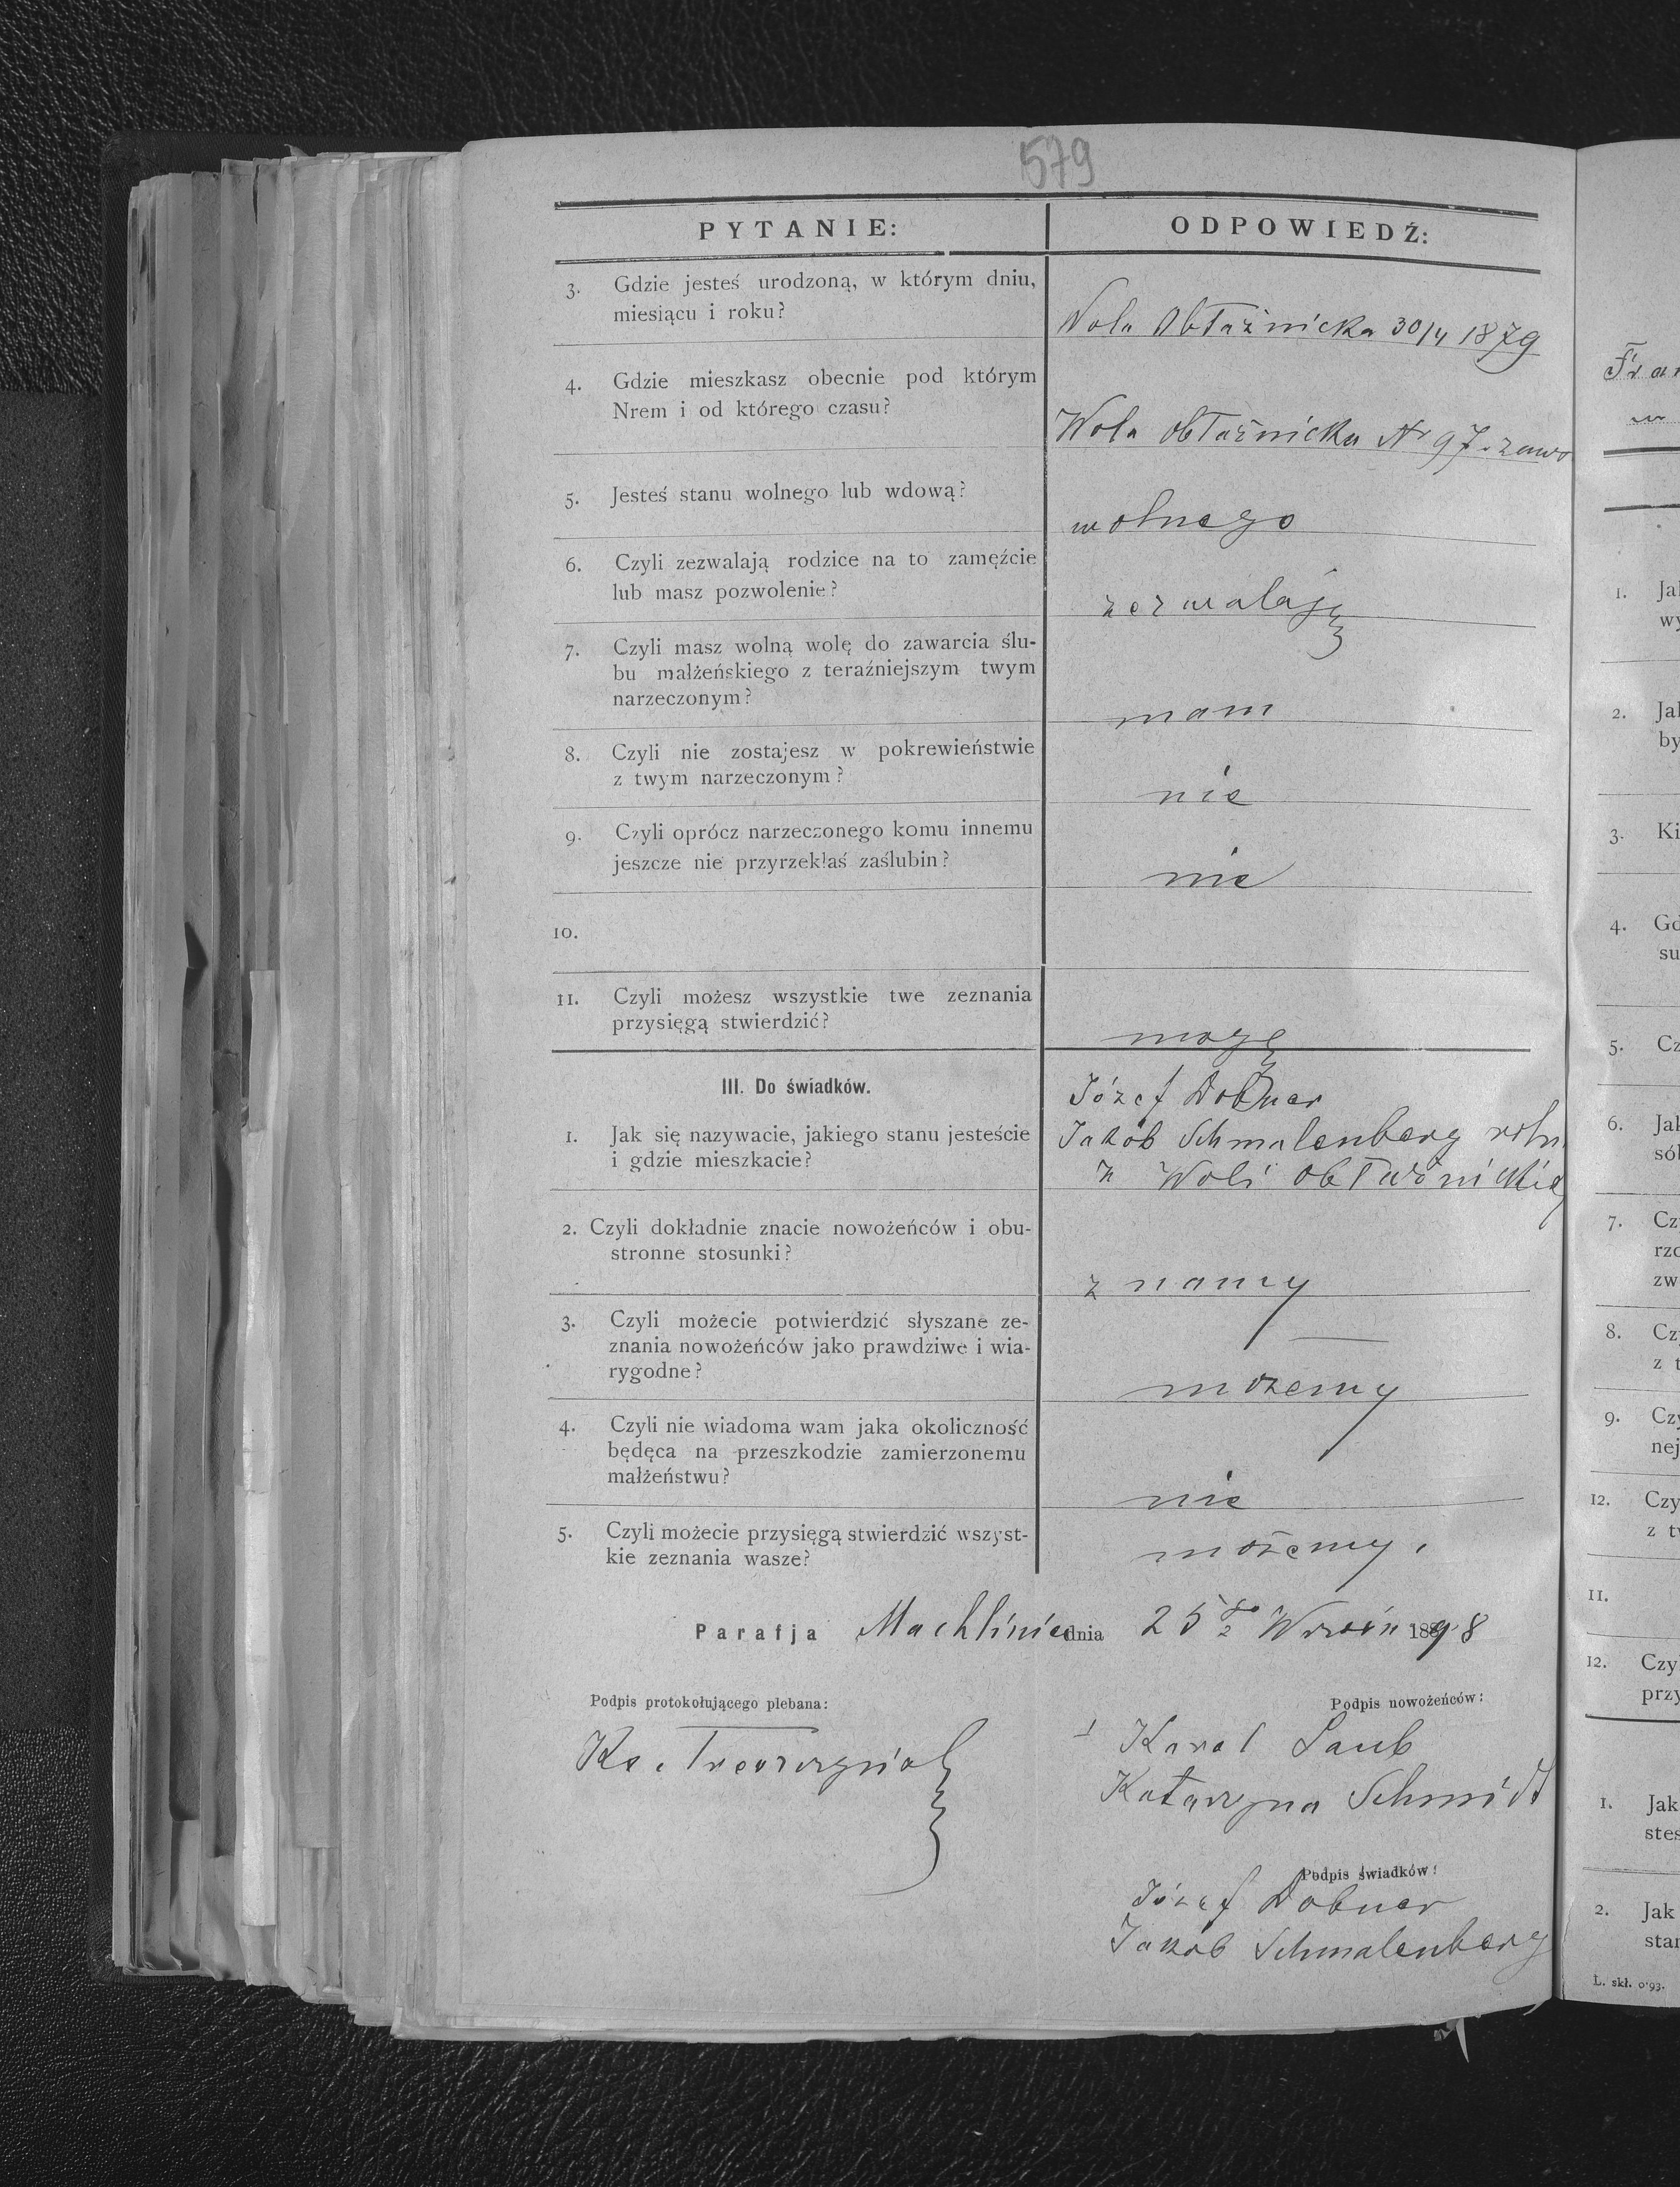 579
PYTANIE:
ODPOWIEDŹ:
3. Gdzie jesteś urodzoną, w którym dniu,
miesiącu i roku?
Wola Obłaźnicka 30/4 1879
4. Gdzie mieszkasz obecnie pod którym
Nrem i od którego czasu?
Wola obłaźnicka Nr 97.
5. Jesteś stanu wolnego lub wdową?
wolnego
6. Czyli zezwalają rodzice na to zamęźcie
lub masz pozwolenie?
zezwalają
7. Czyli masz wolną wolę do zawarcia ślu-
bu małżeńskiego z teraźniejszym twym
narzeczonym?
mam
8. Czyli nie zostajesz w pokrewieństwie
z twym narzeczonym?
nie
9. Czyli oprócz narzeczonego komu innemu
jeszcze nie przyrzekłaś zaślubin?
nie
10.
11. Czyli możesz wszystkie twe zeznania
przysięgą stwierdzić?
mogę
III. Do świadków.
Józef Dobner
1. Jak się nazywacie, jakiego stanu jesteście
i gdzie mieszkacie?
Jakób Schmalenberg roln.
z Woli obłaźnickiej
2. Czyli dokładnie znacie nowożeńców i obu-
stronne stosunki?
znamy
3. Czyli możecie potwierdzić słyszane ze-
znania nowożeńców jako prawdziwe i wia-
rygodne?
możemy
4. Czyli nie wiadoma wam jaka okoliczność
będęca na przeszkodzie zamierzonemu
małżeństwu?
nie
5. Czyli możecie przysięgą stwierdzić wszyst-
kie zeznania wasze?
możemy.
Parafja Machliniec dnia 25 Wrześn 1898
Podpis protokołującego plebana:
Podpis nowożeńców:
Ks.
Karol Laub
Katarzyna Schmidt
Podpis świadków:
Józef Dobner
Jakób Schmalenberg
Fran
w
1. Jak
wy
2. Jak
by
3. Ki
4. Gd
su
5. Cz
6. Jak
sól
7. Cz
rzo
zw
8. Cz
z t
9. Czy
nej
12. Czy
z tw
11.
12. Czy
przy
1. Jak
stes
2. Jak
star
L. skł. 0·93.